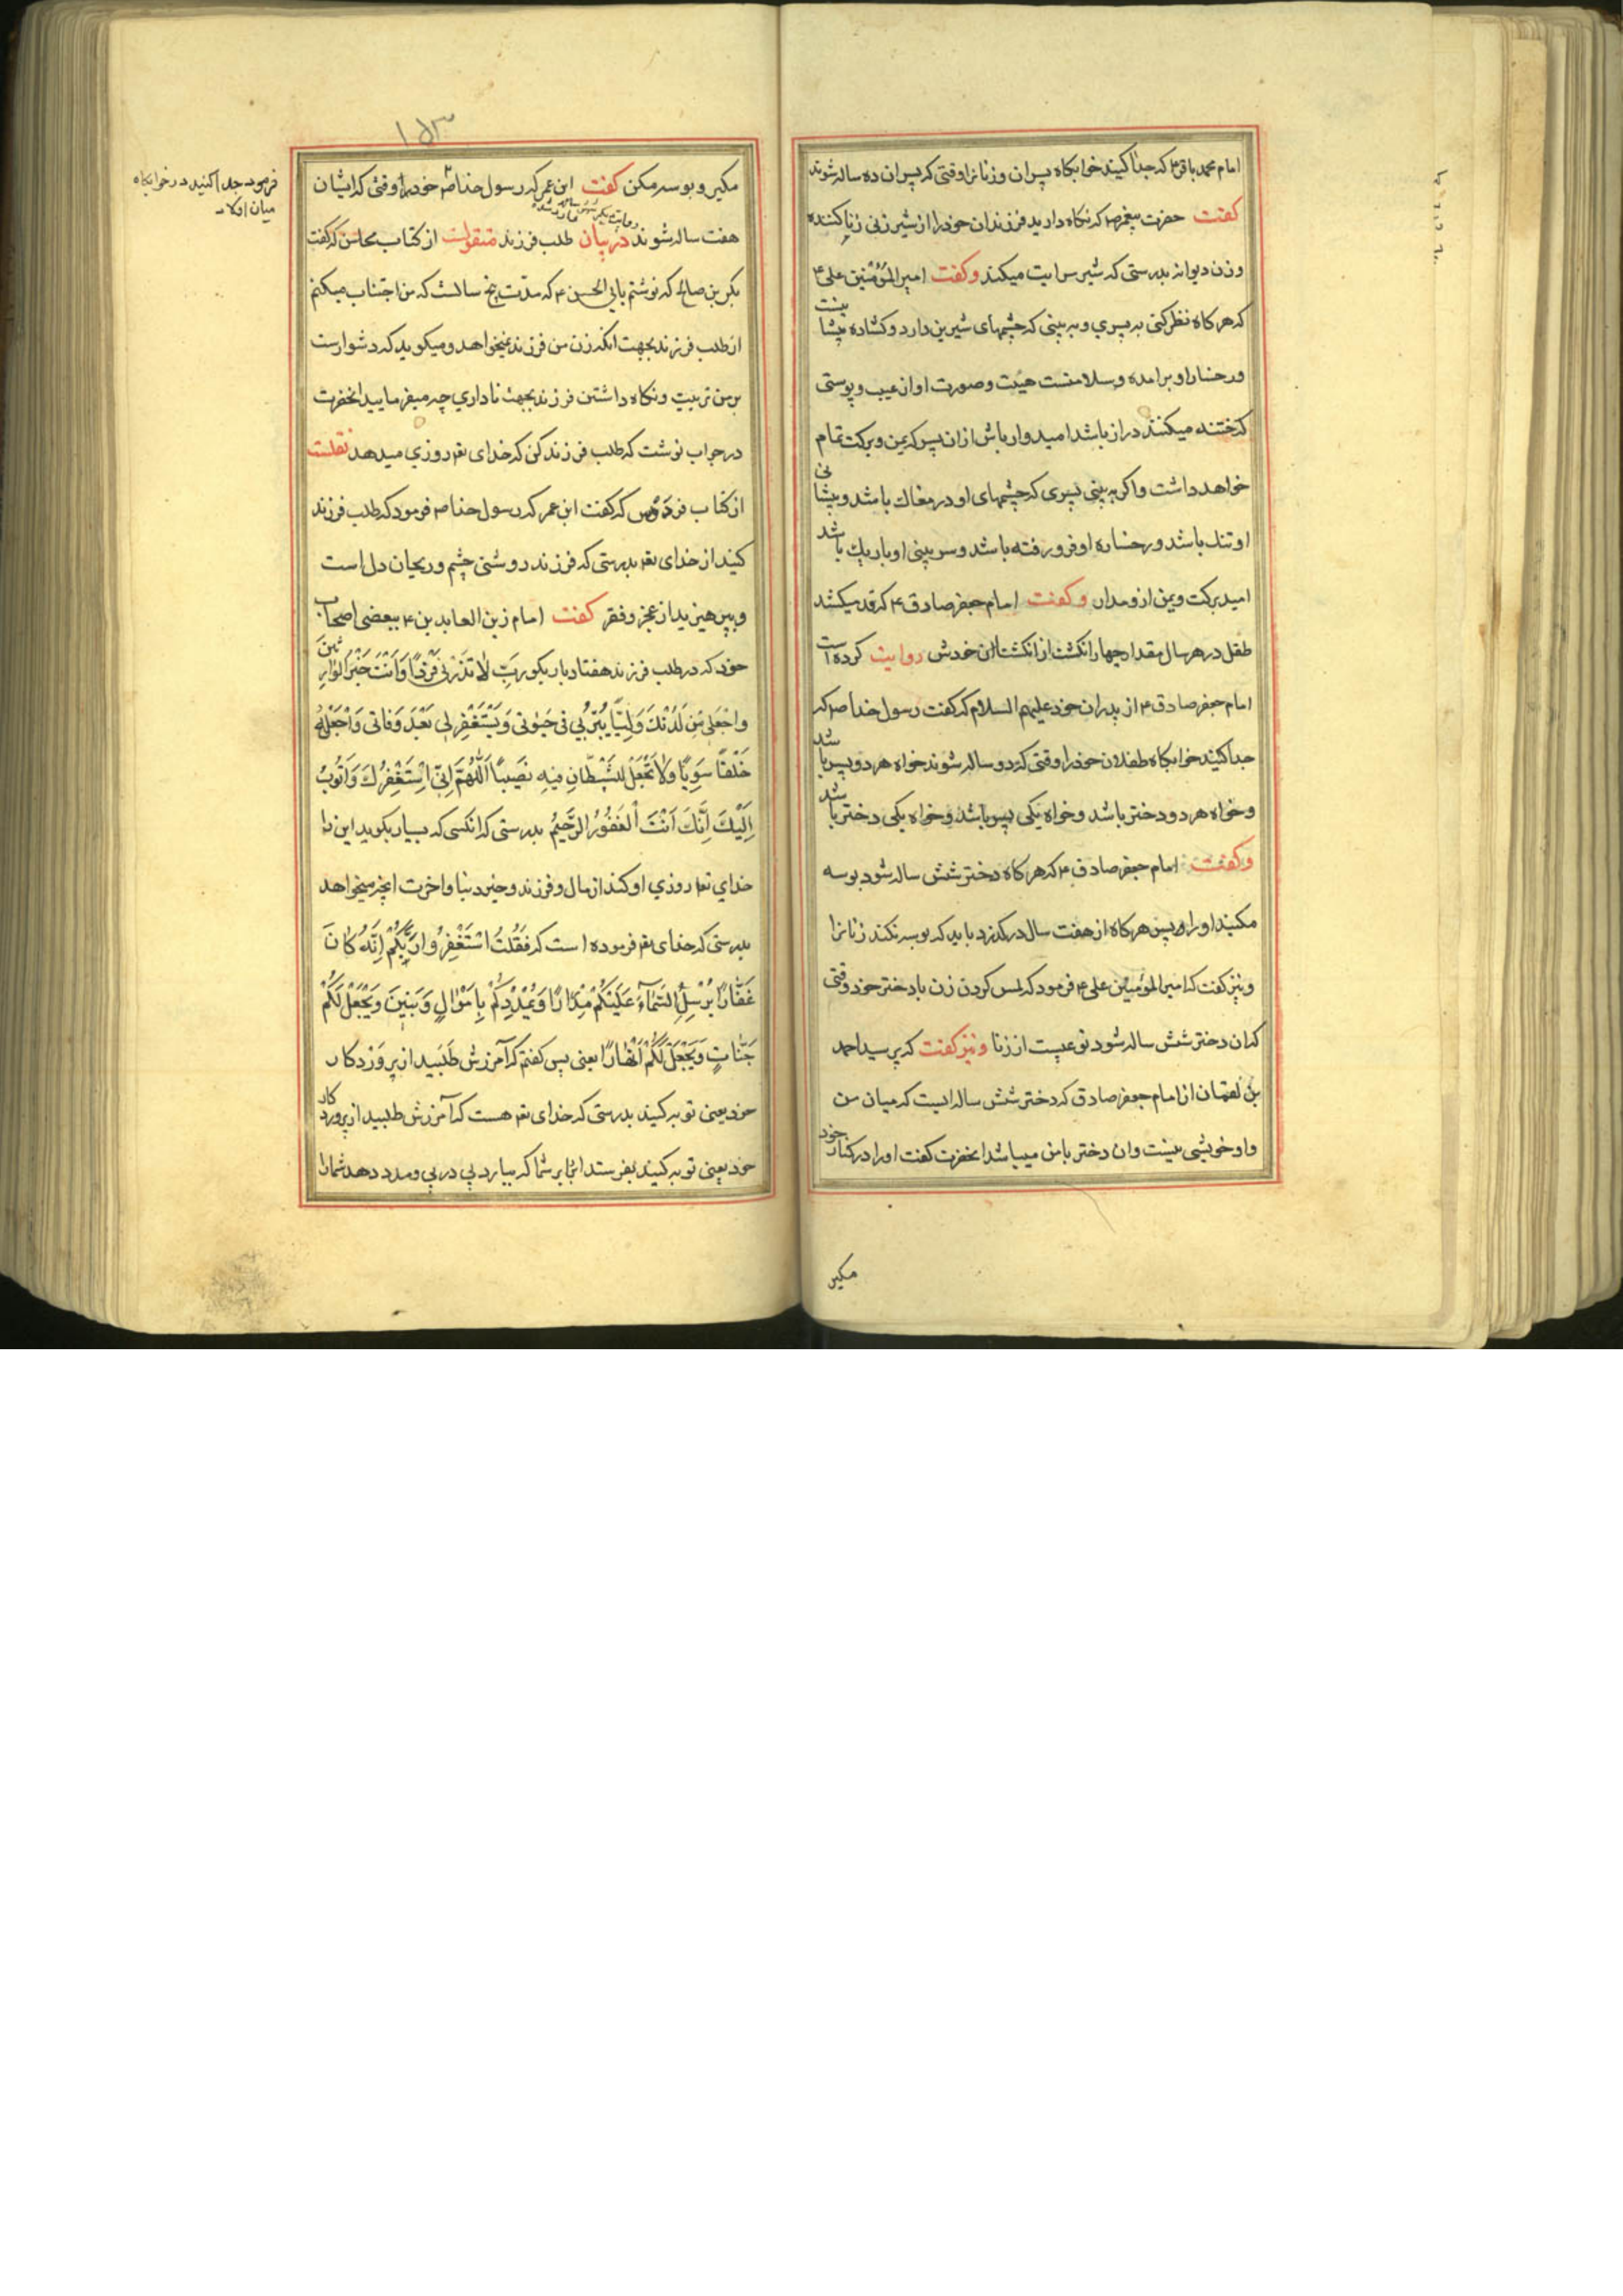 امام محمد باقر ع که جدا کنید خوابکاه پسران وزنانرا وقتی که پسران ده ساله شوند
کفت حضرت پیغمبر ص که نکاه دارید فرزندان خود را از شیر زنی زنا کننده
وزن دیوانه بدرستی که شیر سرایت میکند وکفت امیر المؤمنین علی ع
که هر کاه نظر کنی به پسری و به بینی که چشمهای شیرین دارد وکشاده پیشانیست
ورخسار او برامده وسلامتست هیئت وصورت او از عیب وپوستی
که ختنه میکنند دراز باشد امیدوار باش از ان پسر که یمن وبرکت تمام
خواهد داشت واکر به بینی پسری که چشمهای او در مغاک باشد وپیشانی
او تنک باشد ورخساره او فرو رفته باشد وسر بینی او باریک باشد
امید برکت ویمن از و مدار وکفت امام جعفر صادق ع که قد میکشد
طفل در هر سال مقدار چهار انکشت از انکشتان خودش روایت کرده است
امام جعفر صادق ع از پدران خود علیهم السلام که کفت رسول خدا ص که
جدا کنید خوابکاه طفلان خود را وقتی که دو ساله شوند خواه هر دو پسر باشد
وخواه هر دو دختر باشد وخواه یکی پسر باشد وخواه یکی دختر باشد
وکفت امام جعفر صادق ع که هر کاه دختر شش ساله شود بوسه
مکنید او را و پسر هر کاه از هفت سال در کذرد باید که بوسه نکند زنانرا
ونیز کفت که امیر المؤمنین علی ع فرمود که لمس کردن زن با دختر خود وقتی
که ان دختر شش ساله شود نوعیست از زنا ونیز کفت که پرسید احمد
بن لعمان از امام جعفر صادق که دختر شش ساله ایست که میان من
واو خویشی نیست وان دختر با من میباشد انحضرت کفت او را در کنار خود
مکیر
۱۵۳
مکیر وبوسه مکن کفت ابن عمر که رسول خدا ص خود را وقتی که ایشان
فرمود جدا کنید در خوابکاه
میان اولاد
هفت ساله شوند در بیان طلب فرزند منقولست از کتاب محاسن که کفت
بکر بن صالح که نوشتم بابی الحسن ع که مدت پنج سالست که من اجتناب میکنم
از طلب فرزند بجهت انکه زن من فرزند نمیخواهد ومیکوید که دشوارست
بر من تربیت ونکاه داشتن فرزند بجهت ناداری چه میفرمایید انحضرت
در جواب نوشت که طلب فرزند کن که خدای تع روزی میدهد نقلست
از کتاب فردوس که کفت ابن عمر که رسول خدا ص فرمود که طلب فرزند
کنید از خدای تع بدرستی که فرزند روشنی چشم وریحان دل است
وبپرهیزید از عجز وفقر کفت امام زین العابدین ع ببعضی اصحاب
خود که در طلب فرزند هفتاد بار بکو رَبِّ لا تَذَرْنی فَرْدًا وَاَنْتَ خَیْرُ الْوارِثینَ
واجْعَلْ لی مِنْ لَدُنْکَ وَلِیًّا یَبَرُّ بی فی حَیٰوتی وَیَسْتَغْفِرُ لی بَعْدَ وَفاتی وَاجْعَلْهُ
خَلْقًا سَوِیًّا وَلا تَجْعَلْ لِلشَّیْطانِ فیهِ نَصیبًا اَللّٰهُمَّ اِنّی اَسْتَغْفِرُکَ وَاَتُوبُ
اِلَیْکَ اِنَّکَ اَنْتَ الْغَفُورُ الرَّحیمُ بدرستی که انکسی که بسیار بکوید این را
خدای تع روزی او کند از مال وفرزند وخیر دنیا واخرت انچه میخواهد
بدرستی که خدای تع فرموده است که فَقُلْتُ اسْتَغْفِرُوا رَبَّکُمْ اِنَّهُ کانَ
غَفّارًا یُرْسِلِ السَّمآءَ عَلَیْکُمْ مِدْرارًا وَیُمْدِدْکُمْ بِاَمْوالٍ وَبَنینَ وَیَجْعَلْ لَکُمْ
جَنّاتٍ وَیَجْعَلْ لَکُمْ اَنْهارًا یعنی پس کفتم که آمرزش طَلَبید از پروردکار
خود یعنی توبه کنید بدرستی که خدای تع هست که آمرزش طلبید از پروردکار
خود یعنی توبه کنید بفرستد ابر بر شما که ببارد پی در پی ومدد دهد شما را